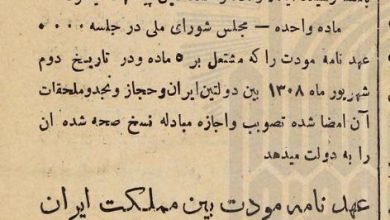 ماده واحده – مجلس شورای ملی در جلسه ....
عهد نامه مودت را که مشتمل بر ۵ ماده ودر تاریخ دوم
شهریور ماه ۱۳۰۸ بین دولتین ایران و حجاز و نجد و ملحقات
آن امضا شده تصویب و اجازه مبادله نسخ صحه شده ان
را به دولت میدهد
عهد نامه مودت بین مملکت ایران